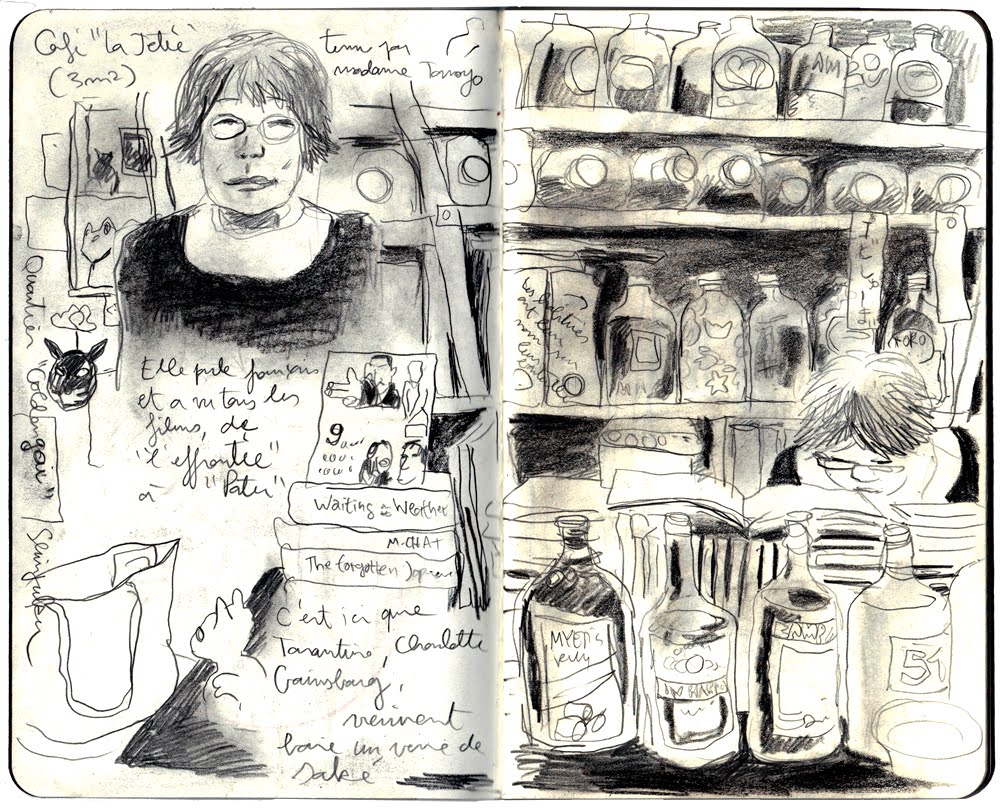 Café "la Jetée"
(3m2)
tenu par
madame Tomoyo
Quartier "Goldengai" Shinjuku
Elle parle français
et a vu tous les
films, de
"l'effrontée"
à "Pater"
9
Waiting Weather
M.CHAT
The forgotten Japan
C'est ici que
Tarantino, Charlotte
Gainsbourg,
viennent
boire un verre de
Saké
AM
エビしゅーま
KORO
MYER'S
51